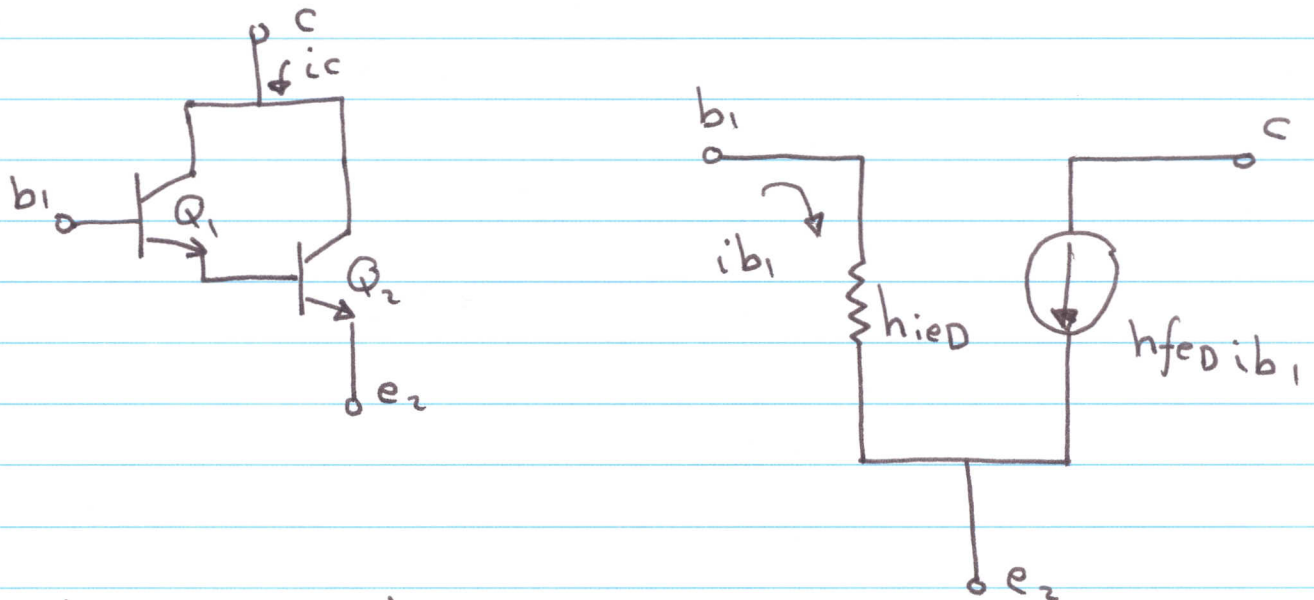 c
ic
b1
Q1
Q2
e2
b1
c
ib1
hieD
hfeD ib1
e2